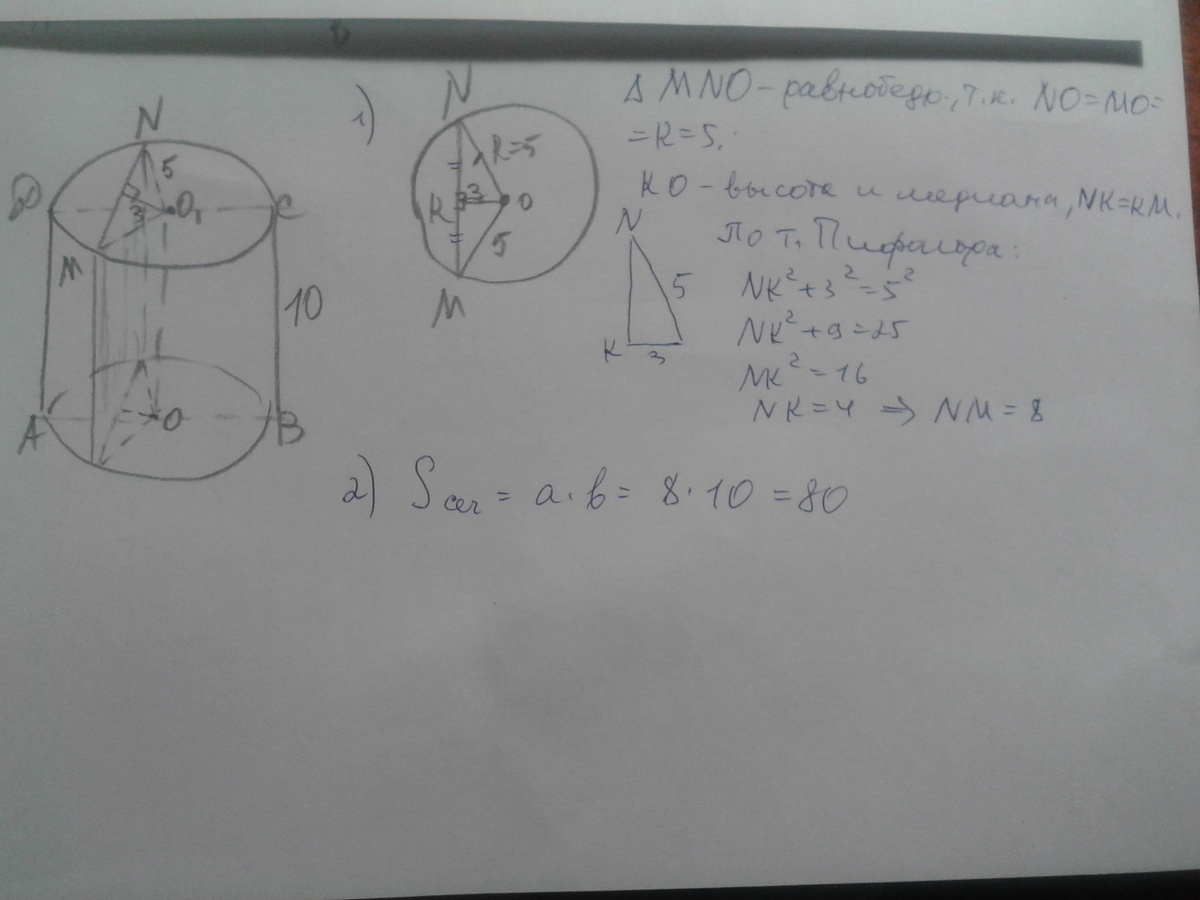 N
5
D
O₁
C
3
M
10
A
O
B
1)
N
R=5
3
K
O
5
M
Δ MNO – равнобедр., т.к. NO=MO=
=R=5.
KO – высота и медиана, NK=KM.
По т. Пифагора:
N
5
K
3
NK²+3²=5²
NK²+9=25
NK²=16
NK=4 ⇒ NM=8
2) Sсеч = a·b = 8·10 =80